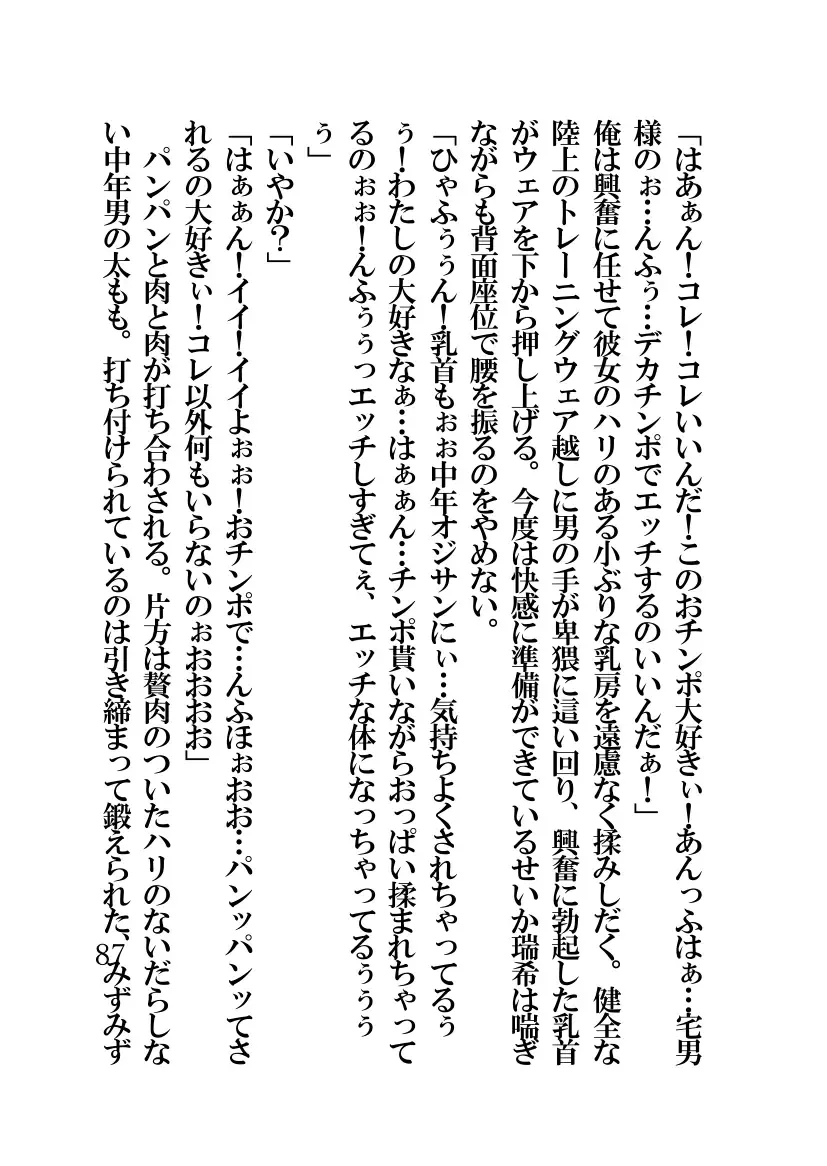 「はあぁん！コレ！コレいいんだ！このおチンポ大好きぃ！あんっふはぁ…宅男
様のぉ…んふぅ…デカチンポでエッチするのいいんだぁ！」
俺は興奮に任せて彼女のハリのある小ぶりな乳房を遠慮なく揉みしだく。健全な
陸上のトレーニングウェア越しに男の手が卑猥に這い回り、興奮に勃起した乳首
がウェアを下から押し上げる。今度は快感に準備ができているせいか瑞希は喘ぎ
ながらも背面座位で腰を振るのをやめない。
「ひゃふぅぅん！乳首もぉぉ中年オジサンにぃ…気持ちよくされちゃってるぅ
ぅ！わたしの大好きなぁ…はぁぁん…チンポ貰いながらおっぱい揉まれちゃって
るのぉぉ！んふぅぅっエッチしすぎてぇ、エッチな体になっちゃってるぅぅぅ
ぅ」
「いやか？」
「はぁぁん！イイ！イイよぉぉ！おチンポで…んふほぉおお…パンッパンッてさ
れるの大好きぃ！コレ以外何もいらないのぉおおおお」
　パンパンと肉と肉が打ち合わされる。片方は贅肉のついたハリのないだらしな
い中年男の太もも。打ち付けられているのは引き締まって鍛えられた、みずみず
87